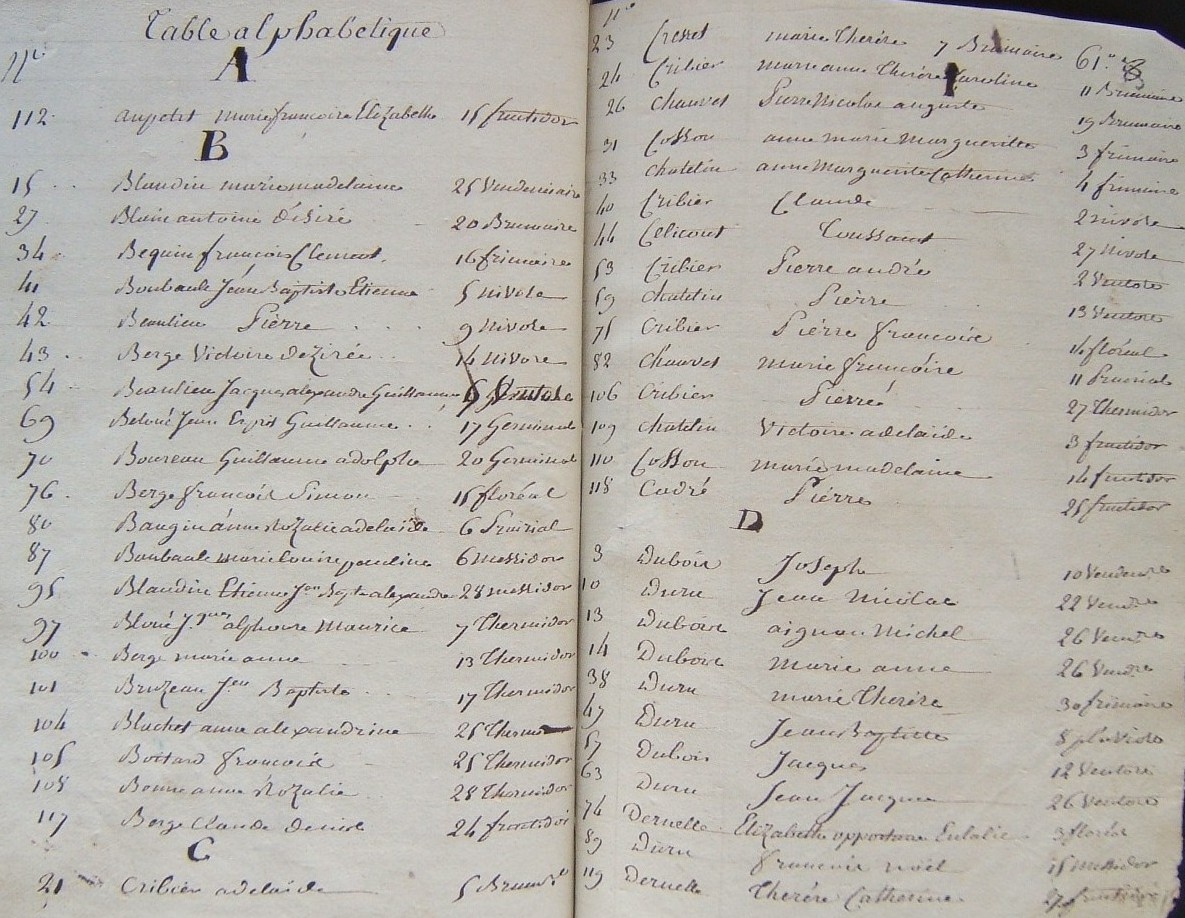 Table alphabétique
N°
A
112 aupetit marie francoise Elizabethe 15 fructidor
B
15 Blandin marie madelaine 25 Vendemiaire
27 Blain antoine désiré 20 Brumaire
34 Bequin françois Clement 16 frimaire
41 Boubault Jean Baptiste Etienne 5 Nivose
42 Beaulieu Pierre 9 Nivose
43 Berge Victoire dezirée 14 Nivose
54 Beaulieu Jacques alexandre Guillaume
69 Jean Esprit Guillaume 17 Germinal
70 Boureau Guillaume adolphe 20 Germinal
76 Berge francois Simon 15 floréal
80 Baugin anne Rozalie adelaide 6 Prairial
87 Boubault marie louise pauline 6 Messidor
95 Blandin Etienne Jean Bapte alexandre 28 messidor
97 Bloué Jques alphonse Maurice 7 Thermidor
100 Berge marie anne 13 Thermidor
101 Bruzeau Jean Baptiste 17 Thermidor
104 Bluchet anne alexandrine 25 Thermi
105 Boitard francois 25 Thermidor
108 Bonne anne Rozalie 28 Thermidor
117 Berge Claude denise 24 fructidor
C
21 Cribier adelaide 5 Brumre
N°
23 Cresset marie Therese 7 Brumaire 61
24 Cribier marie anne Therese Caroline 11 Brumaire
26 Chauvet Pierre Nicolas auguste 19 Brumaire
31 Cosson anne marie Marguerite 3 frimaire
33 Chatelin anne Marguerite Catherine 4 frimaire
40 Cribier Claude 2 nivose
44 Celicourt Toussaint 27 Nivose
53 Cribier Pierre andré 2 Ventose
59 Chatelin Pierre 13 Ventose
75 Cribier Pierre francoise 14 floréal
82 Chauvet marie françoise 11 Prairial
106 Cribier Pierre 27 Thermidor
109 Chatelin Victoire adelaide 3 fructidor
110 Cosson marie madelaine 14 fructidor
118 Cadré Pierre 25 fructidor
D
3 Dubois Joseph 10 Vendemre
10 Duru Jean Nicolas 22 Vendre
13 Dubois aignan Michel 26 Vendre
14 Dubois Marie anne 26 Vendre
38 Duru marie Therese 30 frimaire
47 Duru Jean Baptiste 8 pluviose
57 Dubois Jacques 12 Ventose
63 Duru Jean Jacques 26 Ventose
74 Dernelle Elizabethe opportune Eulalie 3 floréal
89 Duru francois noël 15 Messidor
119 Dernelle Therese Catherine 27 fructidor